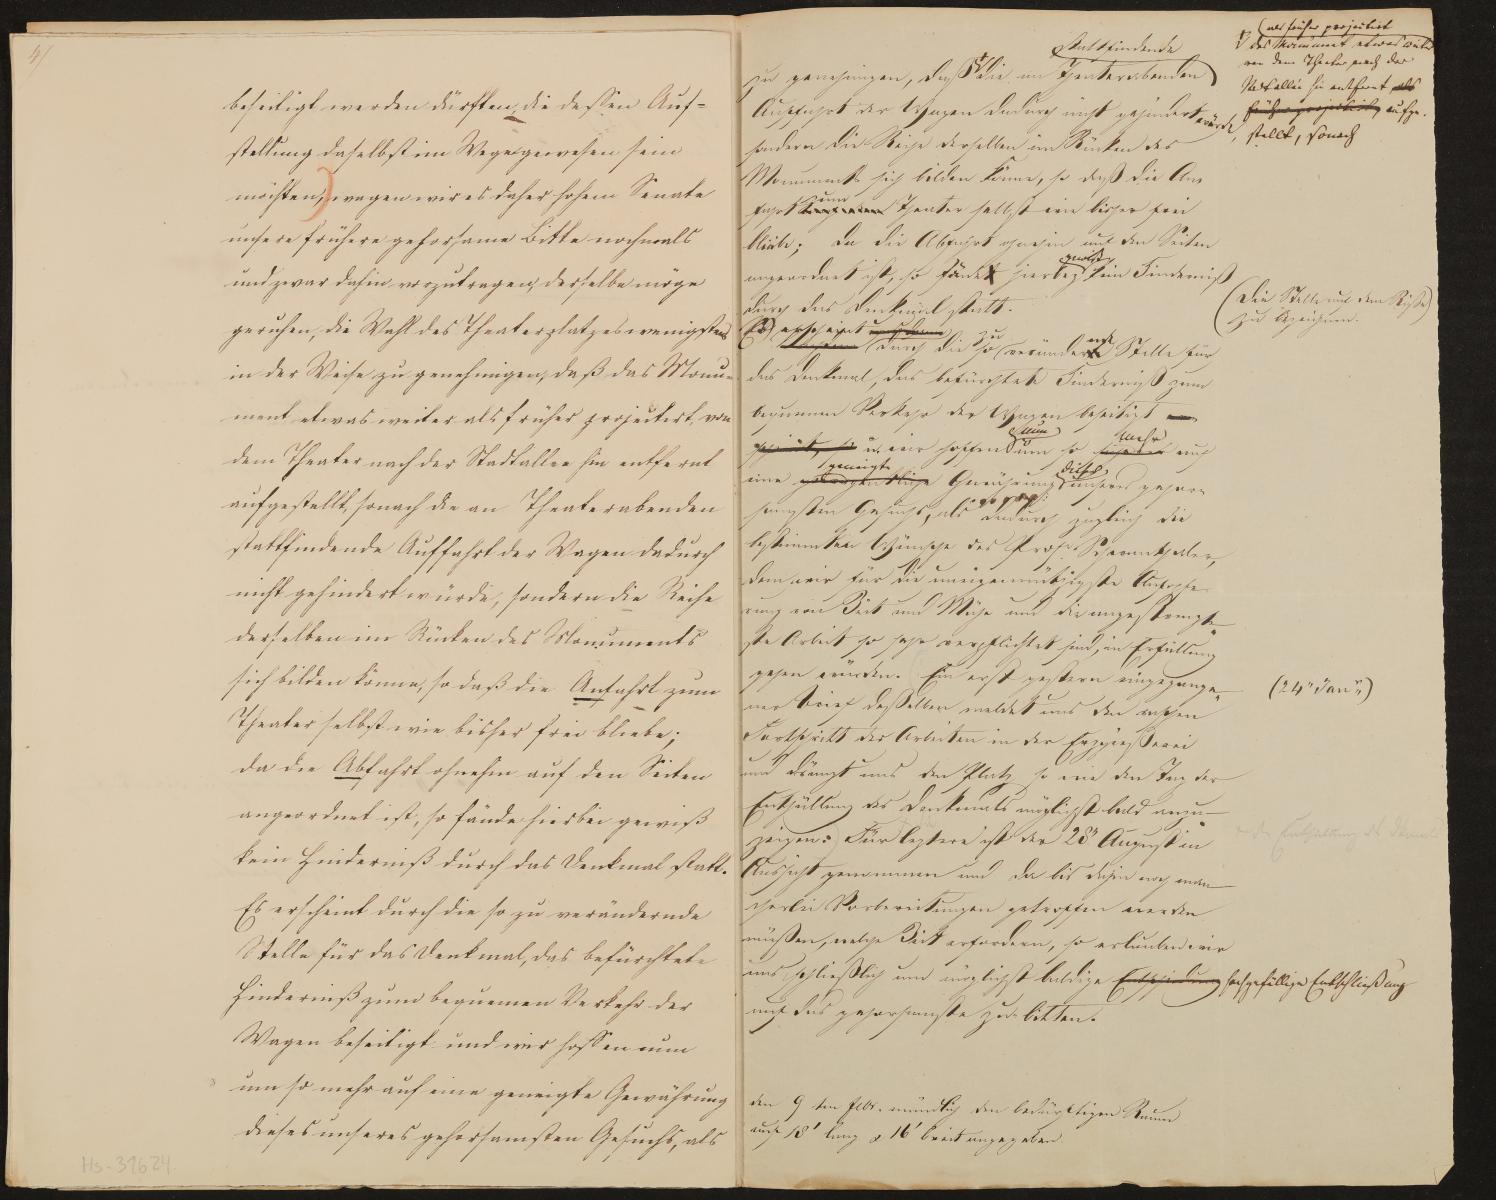 4/
beseitigt werden dürften, die dessen Auf=
stellung daselbst im Wege gewesen sein
möchten, wagen wir es daher hohem Senate
unsere frühere gehorsame Bitte nochmals
und zwar dahin vorzutragen, derselbe möge
geruhen, die Wahl des Theaterplatzes wenigstens
in der Weise zu genehmigen, daß das Monu-
ment etwas weiter als früher projectirt, von
dem Theater nach der Stadtallee hin entfernt
aufgestellt, sonach die an Theaterabenden
stattfindende Auffahrt der Wagen dadurch
nicht gehindert würde, sondern die Reihe
derselben im Rücken des Monuments
sich bilden könne, so daß die Anfahrt zum
Theater selbst wie bisher frei bliebe;
da die Abfahrt ohnehin auf den Seiten
angeordnet ist, so fände hierbei gewiß
kein Hinderniß durch das Denkmal statt.
Es erscheint durch die so zu verändernde
Stelle für das Denkmal, das befürchtete
Hinderniß zum bequemen Verkehr der
Wagen beseitigt und wir hoffen nun
um so mehr auf eine geneigte Gewährung
dieses unseres gehorsamsten Gesuchs, als
Hs-31624
stattfindende
zu genehmigen, daß die an Theaterabenden
Auffahrt der Wagen dadurch nicht gehindert würde,
sondern die Reihe derselben im Rücken des
Monuments sich bilden könne, so daß die An
fahrt zum Theater selbst wie bisher frei
bliebe; da die Abfahrt ohnehin auf den Seiten
angeordnet ist, so fände hierbei gewiß kein Hinderniß
durch das Denkmal statt.
Es erscheint
durch die so zu verändernde Stelle für
das Denkmal, das befürchtete Hinderniß zum
bequemen Verkehr der Wagen beseitigt
u. wir hoffen nun um so mehr auf
eine geneigte Gewährung dieses unseres gehor-
samsten Gesuchs, als dadurch zugleich die
bestimmten Wünsche des Prof. Schwanthaler,
dem wir für die uneigennützigste Aufopfe
rung von Zeit und Mühe und die angestrengte
ste Arbeit so sehr verpflichtet sind, in Erfüllung
gehen würden. Ein erst gestern eingegange-
ner Brief desselben meldet uns den raschen
Fortschritt der Arbeiten in der Erzgießerei
und drängt uns den Platz so wie den Tag der
Enthüllung des Denkmals möglichst bald anzu-
zeigen: Für letztere ist der 28n August in
Aussicht genommen und da bis dahin noch man-
cherlei Vorbereitungen getroffen werden
müssen, welche Zeit erfordern, so erlauben wir
uns schließlich um möglichst baldige Entscheidung hochgefällige Entschließung
auf das gehorsamste zu bitten.
den 9ten Febr. mündlich den bedürftigen Raum
auf 18' lang & 16' breit angegeben
(als früher projectirt
das Monument etwas weiter
von dem Theater nach der
Stadtallee hin entfernt als
früher projectirt, aufge-
stellt, sonach
(Die Stelle auf dem Risse
zu bezeichnen.)
(24n Jan.)